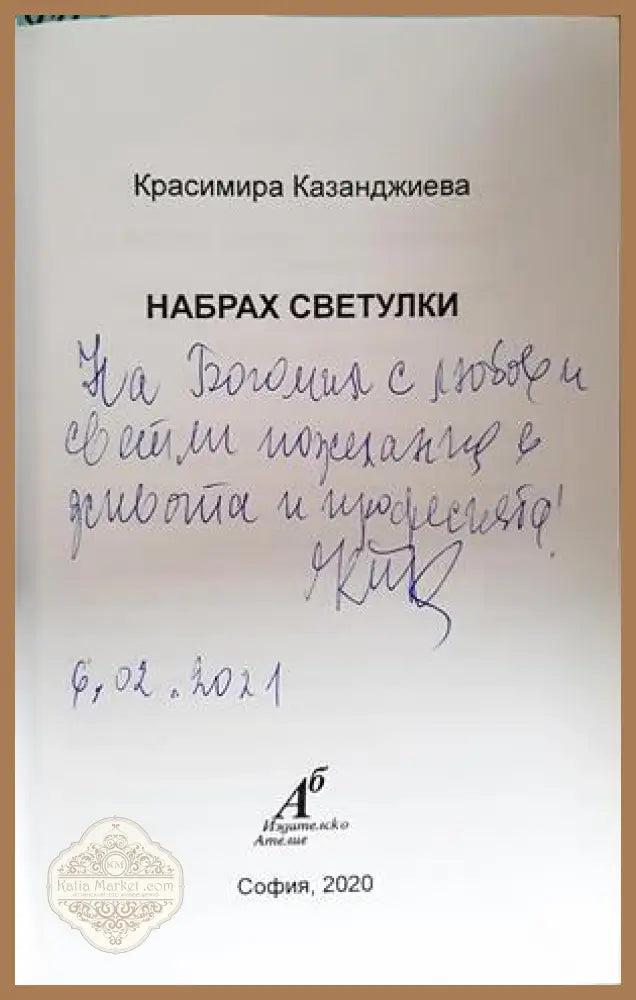 Красимира Казанджиева
НАБРАХ СВЕТУЛКИ
На Богомил с любов и
светли пожелания в
живота и професията!
6.02.2021
Аб
Издателско
Ателие
KM
Katia Market .com
София, 2020